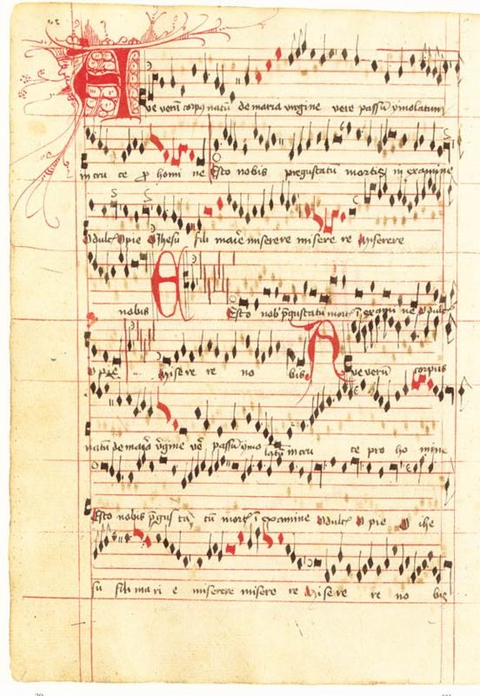 Ave verū corpus natū de maria virgine vere passū ymolatum
in cru ce p homi ne Esto nobis pregustatū mortis in examine
O dulcis O pie O Jhesu fili marie miserere misere re Miserere
nobis Esto nob pgustatū mort ī examine O dulc
O pie Misere re no bis Ave verū corpus
natū de maria virgine vere passū ymo latū in cru ce pro ho mine
Esto nobis pgus ta tū mort ī examine O dulc O pie O ihe
su fili ma ri e miserere misere re Mise re re no bis